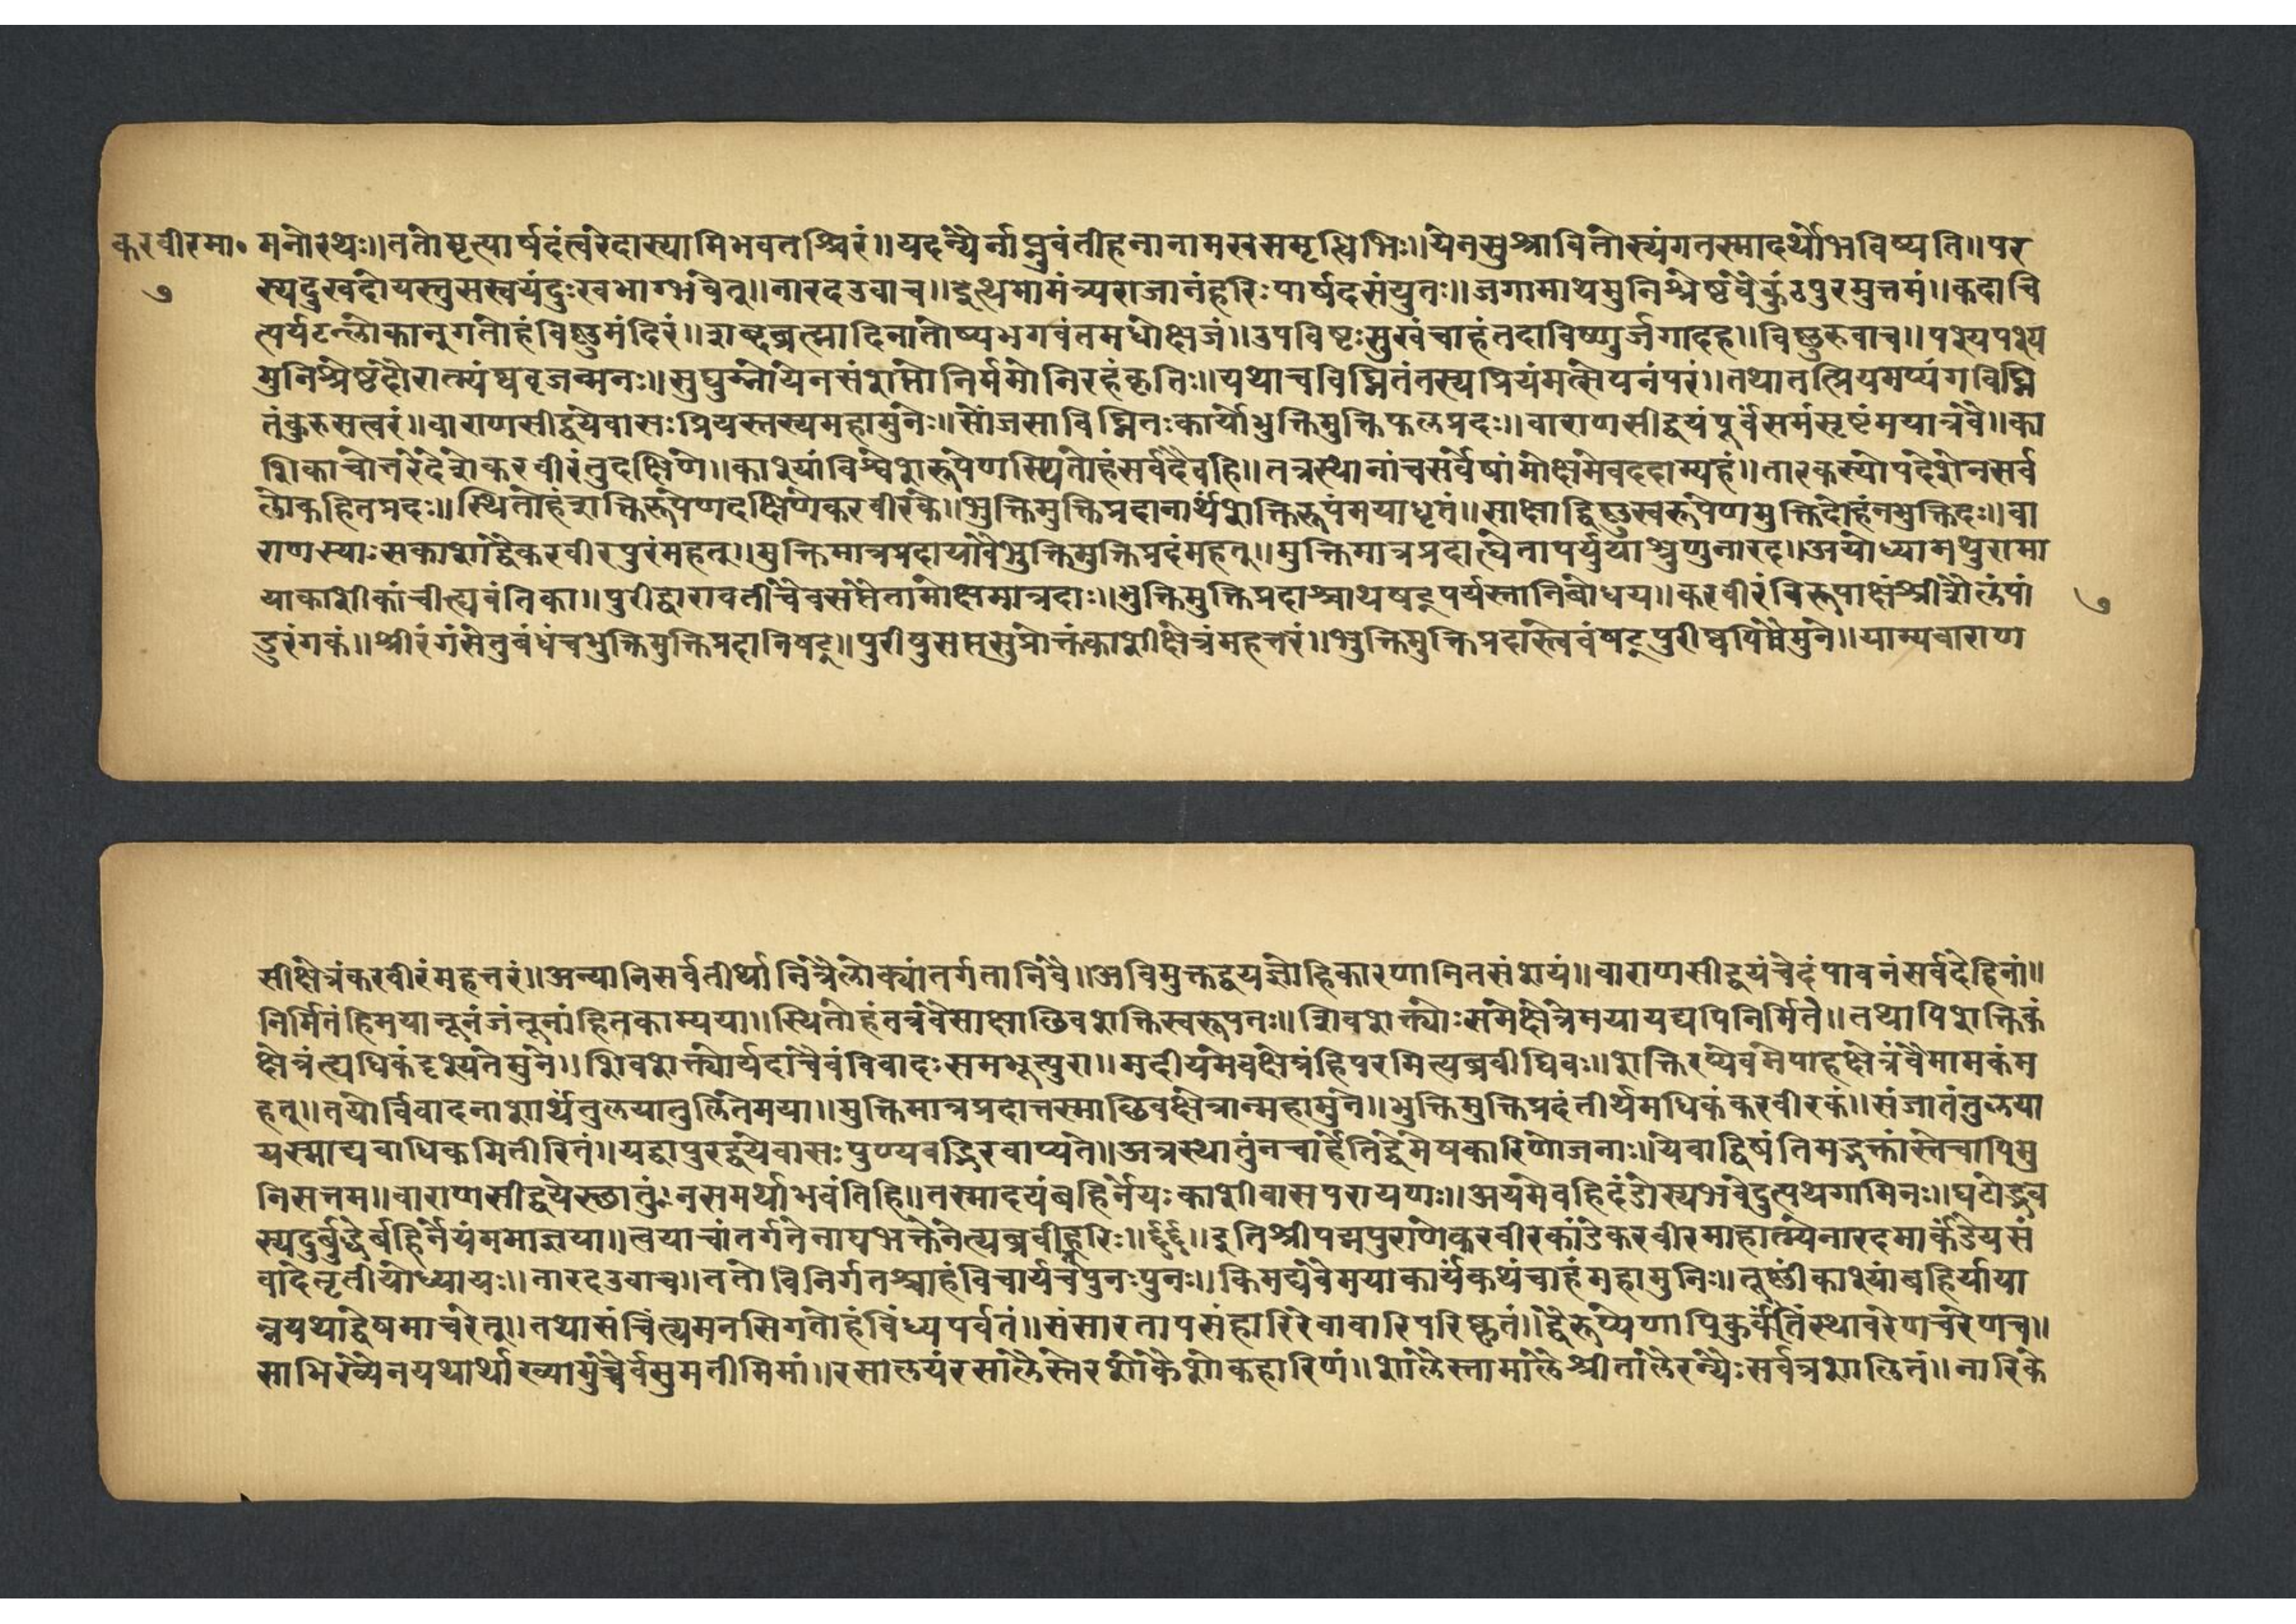 करवीरमा॰ मनोरथः॥ततोमृत्पार्षदंत्वरेदास्यामिभवतश्चिरं॥यदन्यैर्नाप्नुवंतीहनानामखसमृद्धिभिः॥येनसुश्रावितोस्यंगतस्मादर्थोभविष्यति॥पर
७ स्यदुखदोयस्तुसस्वयंदुःखभाग्भवेत्॥नारदउवाच॥इत्थमामंत्र्यराजानंहरिःपार्षदसंयुतः॥जगामाथमुनिश्रेष्ठवैकुंठपुरमुत्तमं॥कदाचि
त्पर्यटन्लोकानुगतोहंविष्णुमंदिरं॥शब्दब्रह्मादिनातोष्यभगवंतमधोक्षजं॥उपविष्टःसुखंचाहंतदाविष्णुर्जगादह॥विष्णुरुवाच॥पश्यपश्य
मुनिश्रेष्ठदौरात्म्यंघवृजन्मनः॥सुघुम्नोयेनसंशप्तोनिर्ममोनिरहंकृतिः॥यथाचविघ्नितंतस्यप्रियंमत्सेपनंपरं॥तथातत्प्रियमप्यंगविघ्नि
तंकुरुसत्वरं॥वाराणसीद्वयेवासःप्रियस्तस्यमहामुनेः॥सोंजसाविघ्नितःकार्योभुक्तिमुक्तिफलप्रदः॥वाराणसीद्वयंपूर्वंसमंसृष्टंमयात्रवै॥का
शिकाचोत्तरेदेशेकरवीरंतुदक्षिणे॥काश्यांविश्वेशरूपेणस्थितोहंसर्वदैवहि॥तत्रस्थानांचसर्वेषांमोक्षमेवददाम्यहं॥तारकस्योपदेशेनसर्व
लोकहितप्रदः॥स्थितोहंशक्तिरूपेणदक्षिणेकरवीरके॥भुक्तिमुक्तिप्रदानार्थंशक्तिरूपंमयाधृतं॥साक्षाद्विष्णुस्वरूपेणमुक्तिदोहंनभुक्तिदः॥वा
राणस्याःसकाशाद्वैकरवीरपुरंमहत्॥मुक्तिमात्रप्रदायावैभुक्तिमुक्तिप्रदंमहत्॥मुक्तिमात्रप्रदात्वेतापर्युर्याश्रुणुनारद॥अयोध्यामथुरामा
याकाशीकांचीत्यवंतिका॥पुरीद्वारावतीचैवसप्तैतामोक्षमात्रदाः॥भुक्तिमुक्तिप्रदाश्चाथषट्पर्यस्तानिबोधय॥करवीरंविरूपाक्षंश्रीशैलंपां ७
डुरंगकं॥श्रीरंगंसेतुबंधंचभुक्तिमुक्तिप्रदानिषट्॥पुरीषुसप्तसुप्रोक्तंकाशीक्षेत्रंमहत्तरं॥भुक्तिमुक्तिप्रदास्वेवंषट्पुरीष्वपिमैमुने॥याम्यवाराण
सीक्षेत्रंकरवीरंमहत्तरं॥अन्यानिसर्वतीर्थानित्रैलोक्यांतर्गतानिवै॥अविमुक्तद्वयज्ञोहिकारणानितसंशयं॥वाराणसीद्वयंचेदंपावनंसर्वदेहिनां॥
निर्मितंहिमयानूनंजंतूनांहितकाम्यया॥स्थितोहंतत्रवैसाक्षाछिवशक्तिस्वरूपतः॥शिवशक्त्योःसमेक्षेत्रेमयायद्यपिनिर्मिते॥तथापिशक्तिकं
क्षेत्रंत्यधिकंदृश्यतेमुने॥शिवशक्त्योर्यदाचैवंविवादःसमभूत्पुरा॥मदीयमेवक्षेत्रंहिपरमित्यब्रवीघिवः॥शक्तिरप्येवमेपाहक्षेत्रंवैमामकंम
हत्॥तयोर्विवादनाशार्थंतुलयातुलितेमया॥मुक्तिमात्रप्रदात्तस्माच्छिवक्षेत्रान्महामुने॥भुक्तिमुक्तिप्रदंतीर्थमधिकंकरवीरकं॥संजातंतुलया
यस्माद्यवाधिकमितीरितं॥यद्वापुरद्वयेवासःपुण्यवद्भिरवाप्यते॥अत्रस्थातुंनचार्हेतिद्वेमेषकारिणोजनाः॥येवाद्विषंतिमद्भक्तांस्तेचापिमु
निसत्तम॥वाराणसीद्वयेस्छातुंनसमर्थाभवंतिहि॥तस्मादयंबहिर्नेयःकाशीवासपरायणः॥अयमेवहिदंडोस्यभवेदुत्पथगामिनः॥घटोद्भव
स्यदुर्बुद्धेर्बहिर्नेयंममाज्ञया॥त्वयाचांतर्गतेनाघभक्तेनेत्यब्रवीद्धरिः॥छ॥छ॥इतिश्रीपद्मपुराणेकरवीरकांडेकरवीरमाहात्म्येनारदमार्कंडेयसं
वादेतृतीयोध्यायः॥नारदउवाच॥ततोविनिर्गतश्चाहंविचार्यचपुनःपुनः॥किमद्यवैमयाकार्यंकथंचाहंमहामुनिः॥तूष्णींकाश्यांबहिर्याया
न्नयथाद्वेषमाचरेत्॥तथासंचिंत्यमनसिगतोहंविंध्यपर्वतं॥संसारतापसंहारिरेवावारिपरिष्कृतं॥द्वैरूप्येणापिकुर्वंतिंस्थावरेणचरेणच॥
साभिख्येनयथार्थाख्यामुच्चैर्वसुमतीमिमां॥रसालयंरसालैस्तेरशोकैशोकहारिणं॥शालैस्तामालैश्रीतालैरन्यैःसर्वत्रशालितं॥नारिके